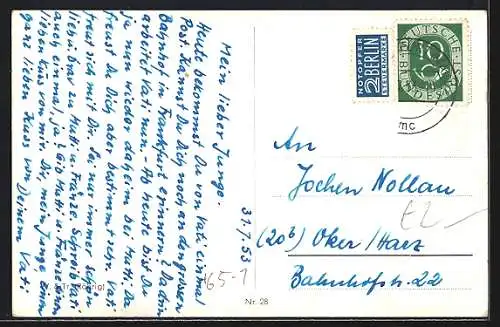 Mein lieber Junge.
Heute bekommst Du von Vati einmal
Post. Kannst Du Dich noch an den grossen
Bahnhof in Frankfurt erinnern? Da drin
arbeitet Vati nun. - Ab heute bist Du
ja nun wieder daheim bei Mutti. Da
freust Du Dich aber bestimmt sehr. Vati
freut sich mit Dir. Sei nur immer schön
lieb u. brav zu Mutti u. Franze. Schreibst
auch einmal, ja? Gib Mutti u. Franze einen
lieben Kuss von mir. Dir, mein Junge, einen
ganz lieben Kuss von Deinem Vati.
31.7.53
NOTOPFER
2 BERLIN
STEUERMARKE
DEUTSCHE
BUNDESPOST
10
An
Jochen Nollau
(20b) Oker/Harz
Bahnhofstr. 22
£2-
65-1
Nr. 28